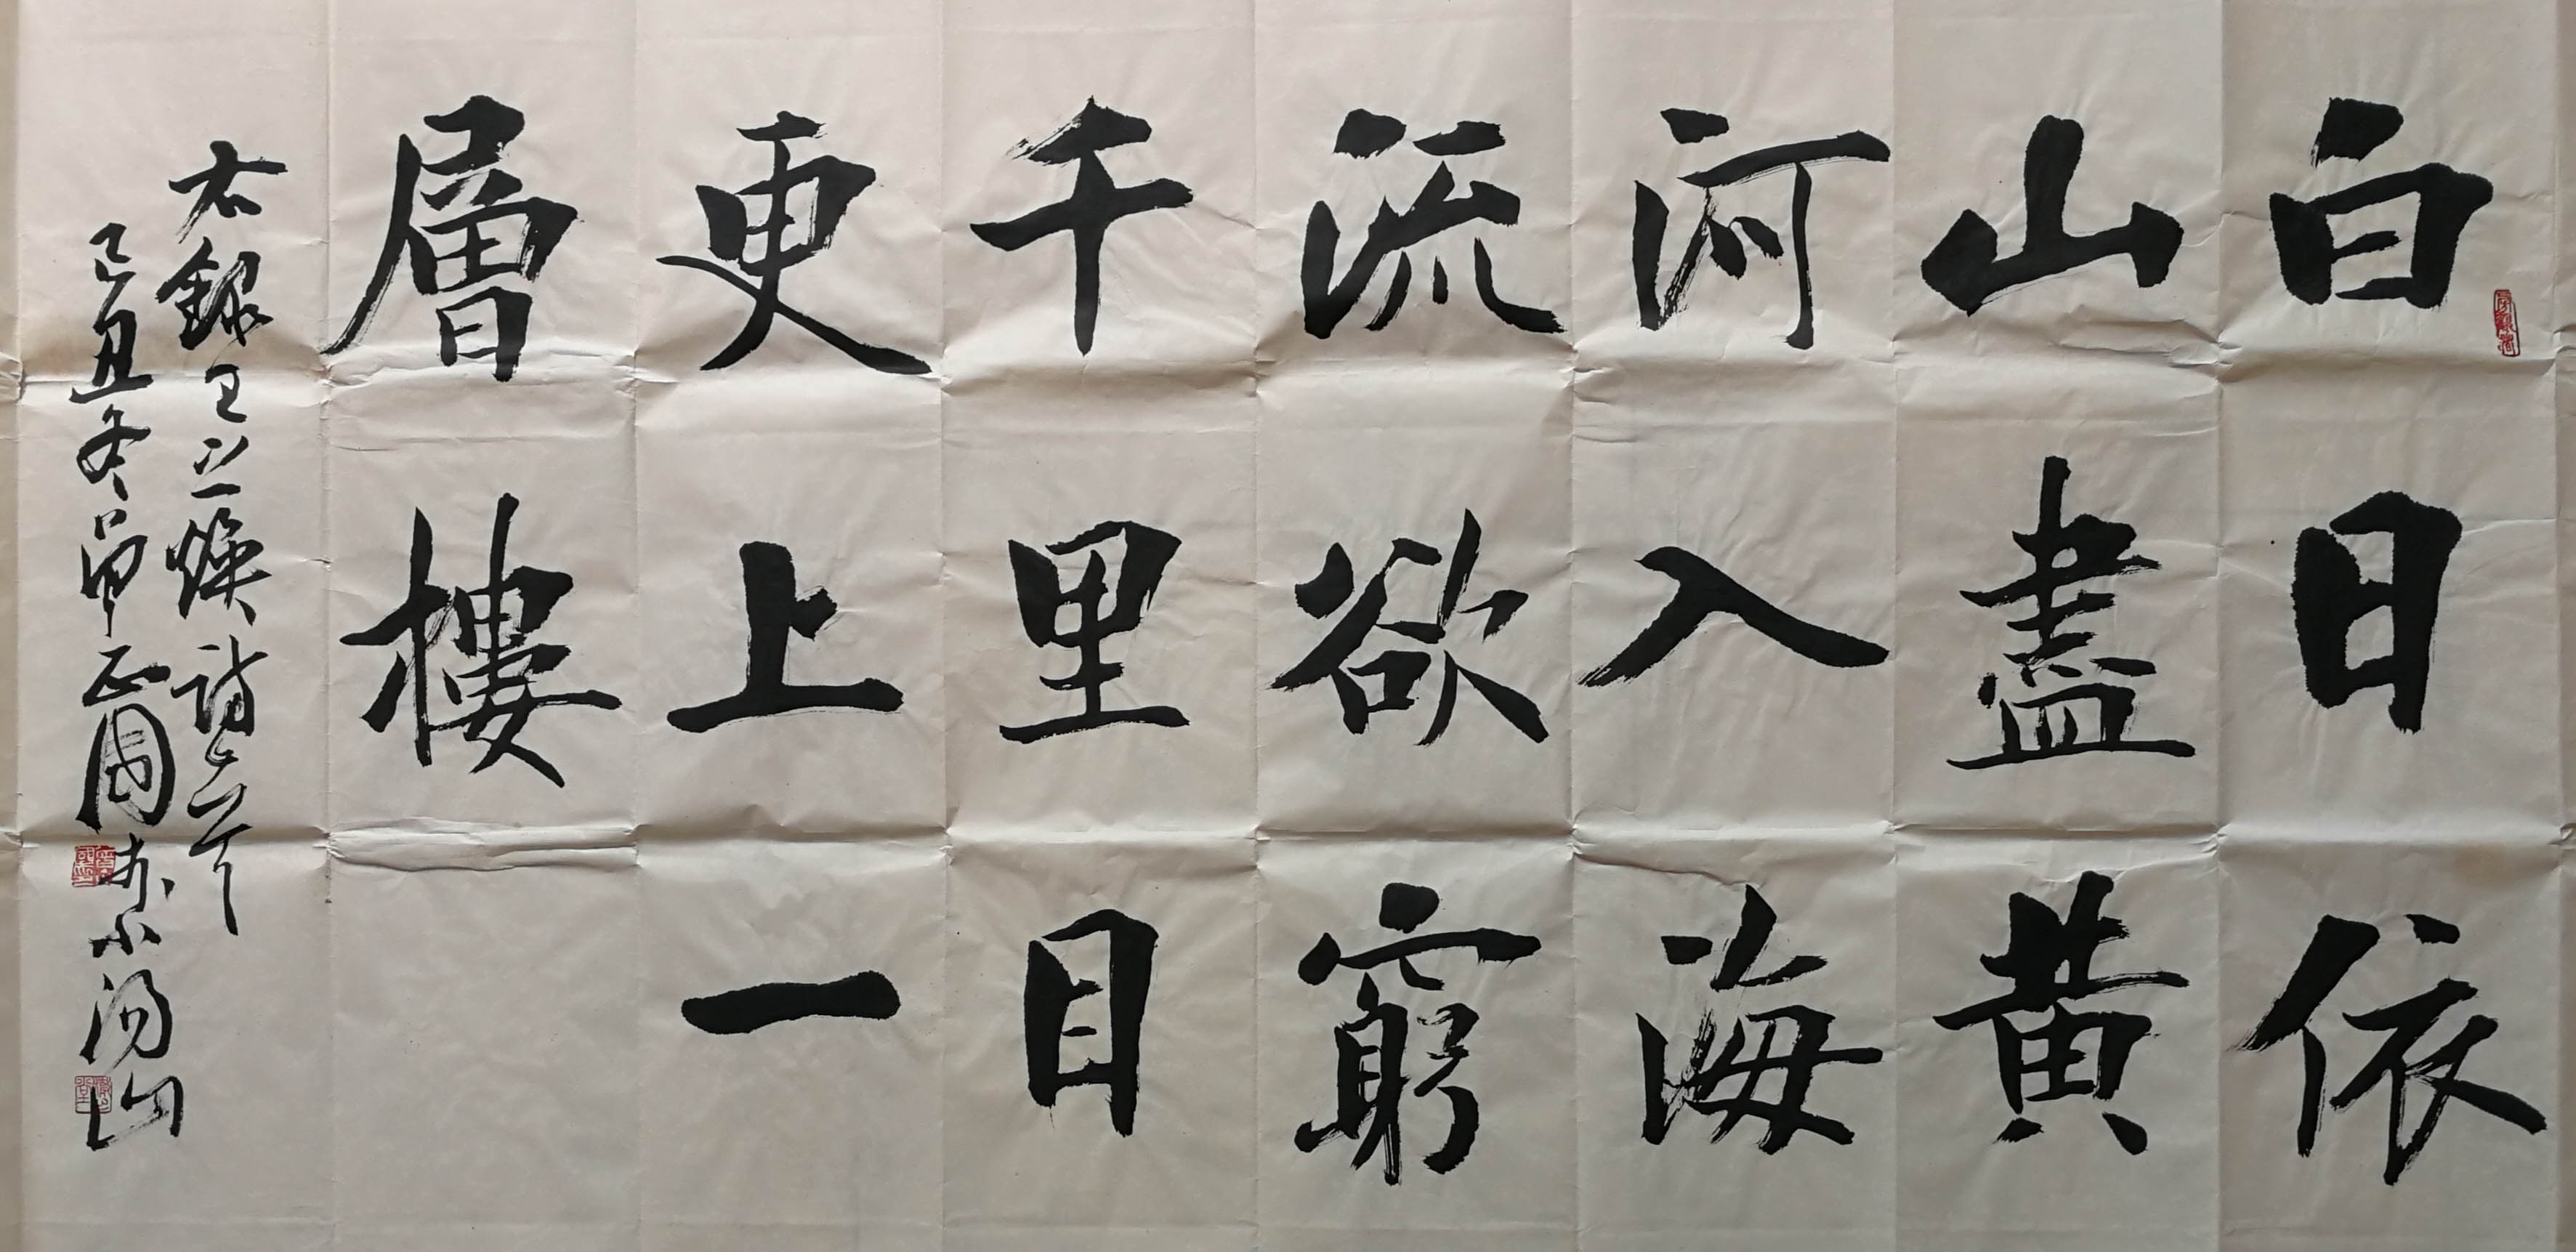 白日依
山盡黃
河入海
流欲窮
千里目
更上一
層樓
右錄王之渙詩一首
己丑冬月單正國書於小湯山